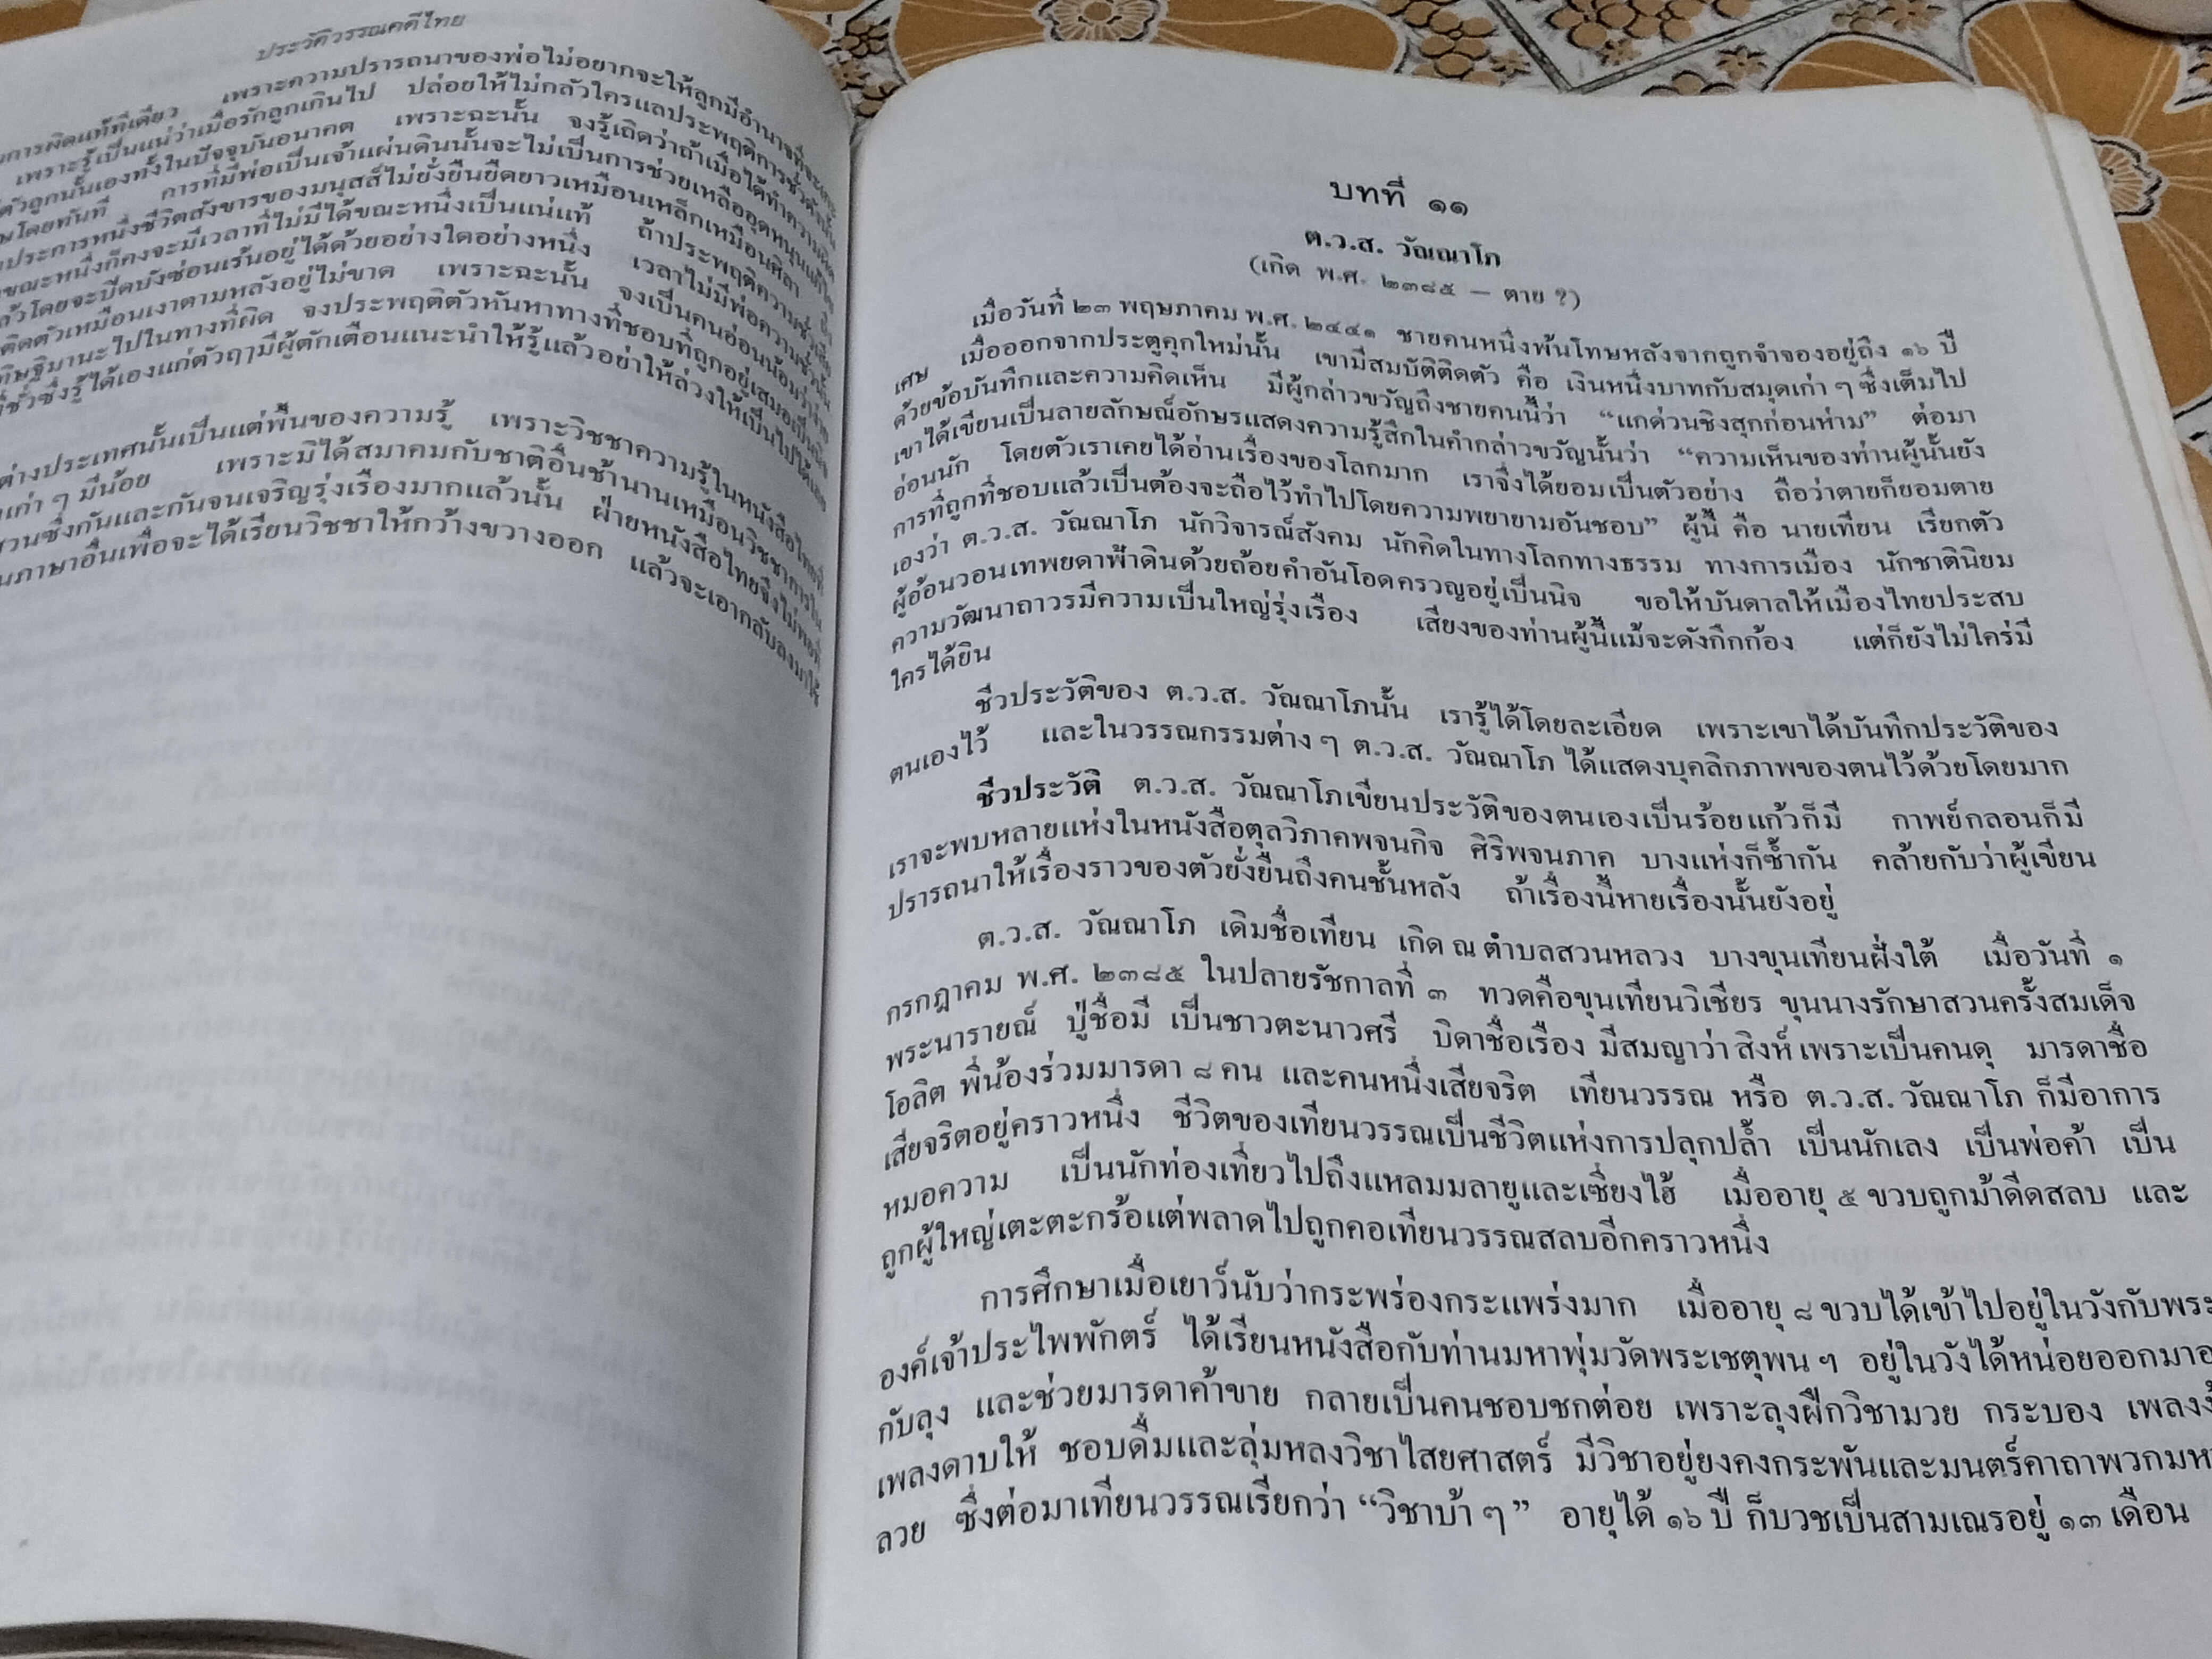 ประวัติวรรณคดีไทย
การผิดแท้ทีเดียว เพราะความปรารถนาของพ่อไม่อยากจะให้ลูกมีอำนาจที่จะ
เพราะรู้เป็นแน่ว่าเมื่อรักลูกเกินไป ปล่อยให้ไม่กลัวใครแลประพฤติการชั่วดังนั้น
ตัวลูกนั้นเองทั้งในปัจจุบันอนาคต เพราะฉะนั้น จงรู้เถิดว่าถ้าเมื่อได้ทำความผิด
โดยทันที การที่มีพ่อเป็นเจ้าแผ่นดินนั้นจะไม่เป็นการช่วยเหลืออุดหนุนแก้ไข
ประการหนึ่งชีวิตสังขารของมนุสส์ไม่ยั่งยืนยืดยาวเหมือนเหล็กเหมือนศิลา
ขณะหนึ่งก็คงจะมีเวลาที่ไม่มีได้ขณะหนึ่งเป็นแน่แท้ ถ้าประพฤติความชั่วเสีย
แล้วโดยจะปิดบังซ่อนเร้นอยู่ได้ด้วยอย่างใดอย่างหนึ่ง เวลาไม่มีพ่อความชั่วนั้น
ติดตัวเหมือนเงาตามหลังอยู่ไม่ขาด เพราะฉะนั้น จงเป็นคนอ่อนน้อมว่าง่าย
ทิษฐิมานะไปในทางที่ผิด จงประพฤติตัวหันหาทางที่ชอบที่ถูกอยู่เสมอเป็นนิจ
ที่ชั่วซึ่งรู้ได้เองแก่ตัวฤามีผู้ตักเตือนแนะนำให้รู้แล้วอย่าให้ล่วงให้เป็นไปได้เลย
ต่างประเทศนั้นเป็นแต่พื้นของความรู้ เพราะวิชชาความรู้ในหนังสือไทยที่
เก่า ๆ มีน้อย เพราะมิได้สมาคมกับชาติอื่นช้านานเหมือนวิชชาการใน
สวนซึ่งกันและกันจนเจริญรุ่งเรืองมากแล้วนั้น ฝ่ายหนังสือไทยจึงไม่พอที่
ภาษาอื่นเพื่อจะได้เรียนวิชชาให้กว้างขวางออก แล้วจะเอากลับลงมาใช้
บทที่ ๑๑
ต.ว.ส. วัณณาโภ
(เกิด พ.ศ. ๒๓๘๕ — ตาย ?)
เมื่อวันที่ ๒๓ พฤษภาคม พ.ศ. ๒๔๔๑ ชายคนหนึ่งพ้นโทษหลังจากถูกจำจองอยู่ถึง ๑๖ ปี
เศษ เมื่อออกจากประตูคุกใหม่นั้น เขามีสมบัติติดตัว คือ เงินหนึ่งบาทกับสมุดเก่า ๆ ซึ่งเต็มไป
ด้วยข้อบันทึกและความคิดเห็น มีผู้กล่าวขวัญถึงชายคนนี้ว่า “แกด่วนชิงสุกก่อนห่าม” ต่อมา
เขาได้เขียนเป็นลายลักษณ์อักษรแสดงความรู้สึกในคำกล่าวขวัญนั้นว่า “ความเห็นของท่านผู้นั้นยัง
อ่อนนัก โดยตัวเราเคยได้อ่านเรื่องของโลกมาก เราจึ่งได้ยอมเป็นตัวอย่าง ถือว่าตายก็ยอมตาย
การที่ถูกที่ชอบแล้วเป็นต้องจะถือไว้ทำไปโดยความพยายามอันชอบ” ผู้นี้ คือ นายเทียน เรียกตัว
เองว่า ต.ว.ส. วัณณาโภ นักวิจารณ์สังคม นักคิดในทางโลกทางธรรม ทางการเมือง นักชาตินิยม
ผู้อ้อนวอนเทพยดาฟ้าดินด้วยถ้อยคำอันโอดครวญอยู่เป็นนิจ ขอให้บันดาลให้เมืองไทยประสบ
ความวัฒนาถาวรมีความเป็นใหญ่รุ่งเรือง เสียงของท่านผู้นี้แม้จะดังกึกก้อง แต่ก็ยังไม่ใคร่มี
ใครได้ยิน
ชีวประวัติของ ต.ว.ส. วัณณาโภนั้น เรารู้ได้โดยละเอียด เพราะเขาได้บันทึกประวัติของ
ตนเองไว้ และในวรรณกรรมต่าง ๆ ต.ว.ส. วัณณาโภ ได้แสดงบุคลิกภาพของตนไว้ด้วยโดยมาก
ชีวประวัติ ต.ว.ส. วัณณาโภเขียนประวัติของตนเองเป็นร้อยแก้วก็มี กาพย์กลอนก็มี
เราจะพบหลายแห่งในหนังสือตุลวิภาคพจนกิจ ศิริพจนภาค บางแห่งก็ซ้ำกัน คล้ายกับว่าผู้เขียน
ปรารถนาให้เรื่องราวของตัวยั่งยืนถึงคนชั้นหลัง ถ้าเรื่องนี้หายเรื่องนั้นยังอยู่
ต.ว.ส. วัณณาโภ เดิมชื่อเทียน เกิด ณ ตำบลสวนหลวง บางขุนเทียนฝั่งใต้ เมื่อวันที่ ๑
กรกฎาคม พ.ศ. ๒๓๘๕ ในปลายรัชกาลที่ ๓ ทวดคือขุนเทียนวิเชียร ขุนนางรักษาสวนครั้งสมเด็จ
พระนารายณ์ ปู่ชื่อมี เป็นชาวตะนาวศรี บิดาชื่อเรือง มีสมญาว่า สิงห์ เพราะเป็นคนดุ มารดาชื่อ
โอลิต พี่น้องร่วมมารดา ๘ คน และคนหนึ่งเสียจริต เทียนวรรณ หรือ ต.ว.ส. วัณณาโภ ก็มีอาการ
เสียจริตอยู่คราวหนึ่ง ชีวิตของเทียนวรรณเป็นชีวิตแห่งการปลุกปล้ำ เป็นนักเลง เป็นพ่อค้า เป็น
หมอความ เป็นนักท่องเที่ยวไปถึงแหลมมลายูและเซี่ยงไฮ้ เมื่ออายุ ๕ ขวบถูกม้าดีดสลบ และ
ถูกผู้ใหญ่เตะตะกร้อแต่พลาดไปถูกคอเทียนวรรณสลบอีกคราวหนึ่ง
การศึกษาเมื่อเยาว์นับว่ากระพร่องกระแพร่งมาก เมื่ออายุ ๘ ขวบได้เข้าไปอยู่ในวังกับพระ
องค์เจ้าประไพพักตร์ ได้เรียนหนังสือกับท่านมหาพุ่มวัดพระเชตุพน ฯ อยู่ในวังได้หน่อยออกมา
กับลุง และช่วยมารดาค้าขาย กลายเป็นคนชอบชกต่อย เพราะลุงฝึกวิชามวย กระบอง เพลง
เพลงดาบให้ ชอบดื่มและลุ่มหลงวิชาไสยศาสตร์ มีวิชาอยู่ยงคงกระพันและมนตร์คาถาพวกมหา
ลวย ซึ่งต่อมาเทียนวรรณเรียกว่า “วิชาบ้า ๆ” อายุได้ ๑๖ ปี ก็บวชเป็นสามเณรอยู่ ๑๓ เดือน